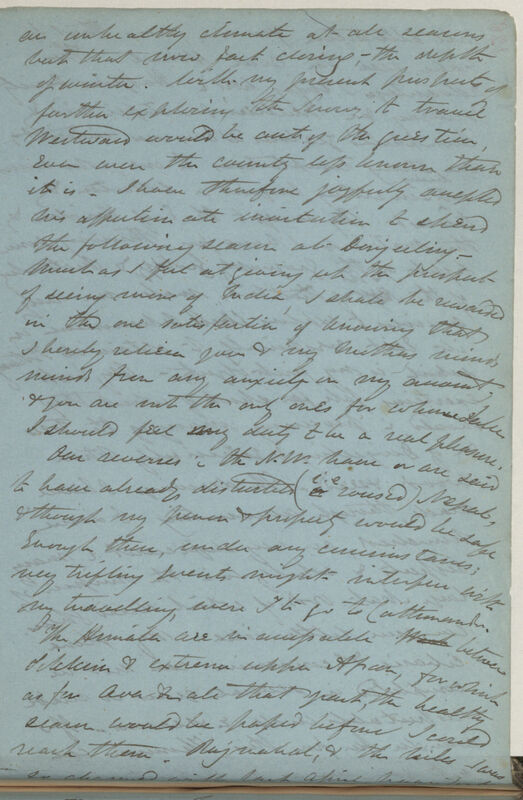 an unhealthy climate at all seasons
but that now fast closing, – the depth
of winter. With my present prospects of
further exploring the Snowy, to travel
Westward would be out of the question,
even were the country less known than
it is – I have therefore joyfully accepted
his affectionate invitation to spend
the following season at Dorjiling –
Much as I felt at giving up the prospect
of seeing more of India, I shall be rewarded
in the one satisfaction of knowing that
I hereby relieve you & my Mothers minds
minds from any anxiety on my account,
& you are not the only ones for whose sake
I should feel my duty to be a real pleasure.
Our reverses in the N.W. have or are said
to have already disturbed (i.e. roused) Nepal,
& though my person & property would be safe
Enough there, under any circumstances;
very trifling events might interfere with
my travelling, were I to go to Cathmandu.
The Himala are inaccessible between
Sikkim & extreme upper Assam, for which
as for Ava & all that part, the healthy
season would be passed before I could
reach them. Rajmahal, & the hills I was
so